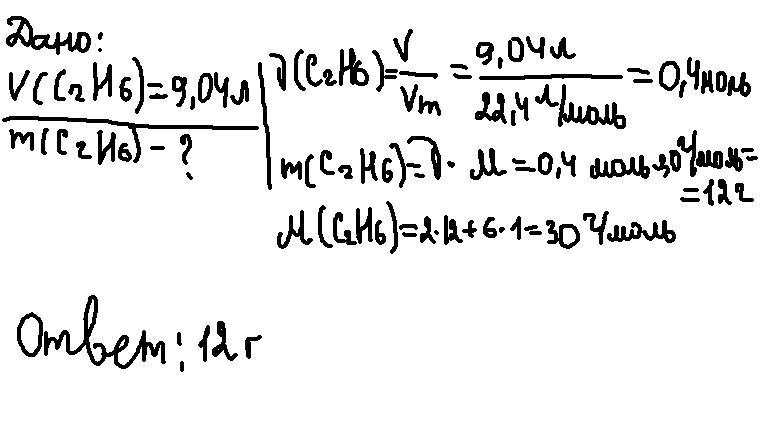 Дано:
V(C₂H₆)=9,04л
m(C₂H₆) - ?
ν(C₂H₆)=V/Vm = 9,04л/22,4 л/моль = 0,4моль
m(C₂H₆)=ν· M = 0,4 моль·30 г/моль=
=12г
M(C₂H₆)=2·12+6·1=30 г/моль
Ответ: 12 г